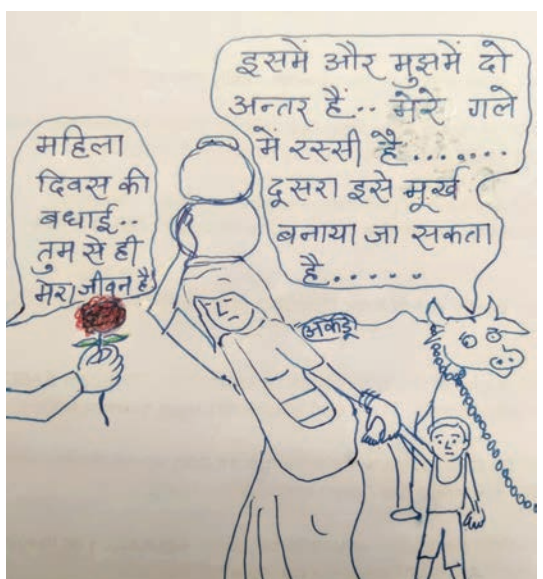 महिला
दिवस की
बधाई..
तुम से ही
मेरा जीवन है
इसमें और मुझमें दो
अन्तर हैं.. मेरे गले
में रस्सी है......
दूसरा इसे मूर्ख
बनाया जा सकता
है.....
अकडू